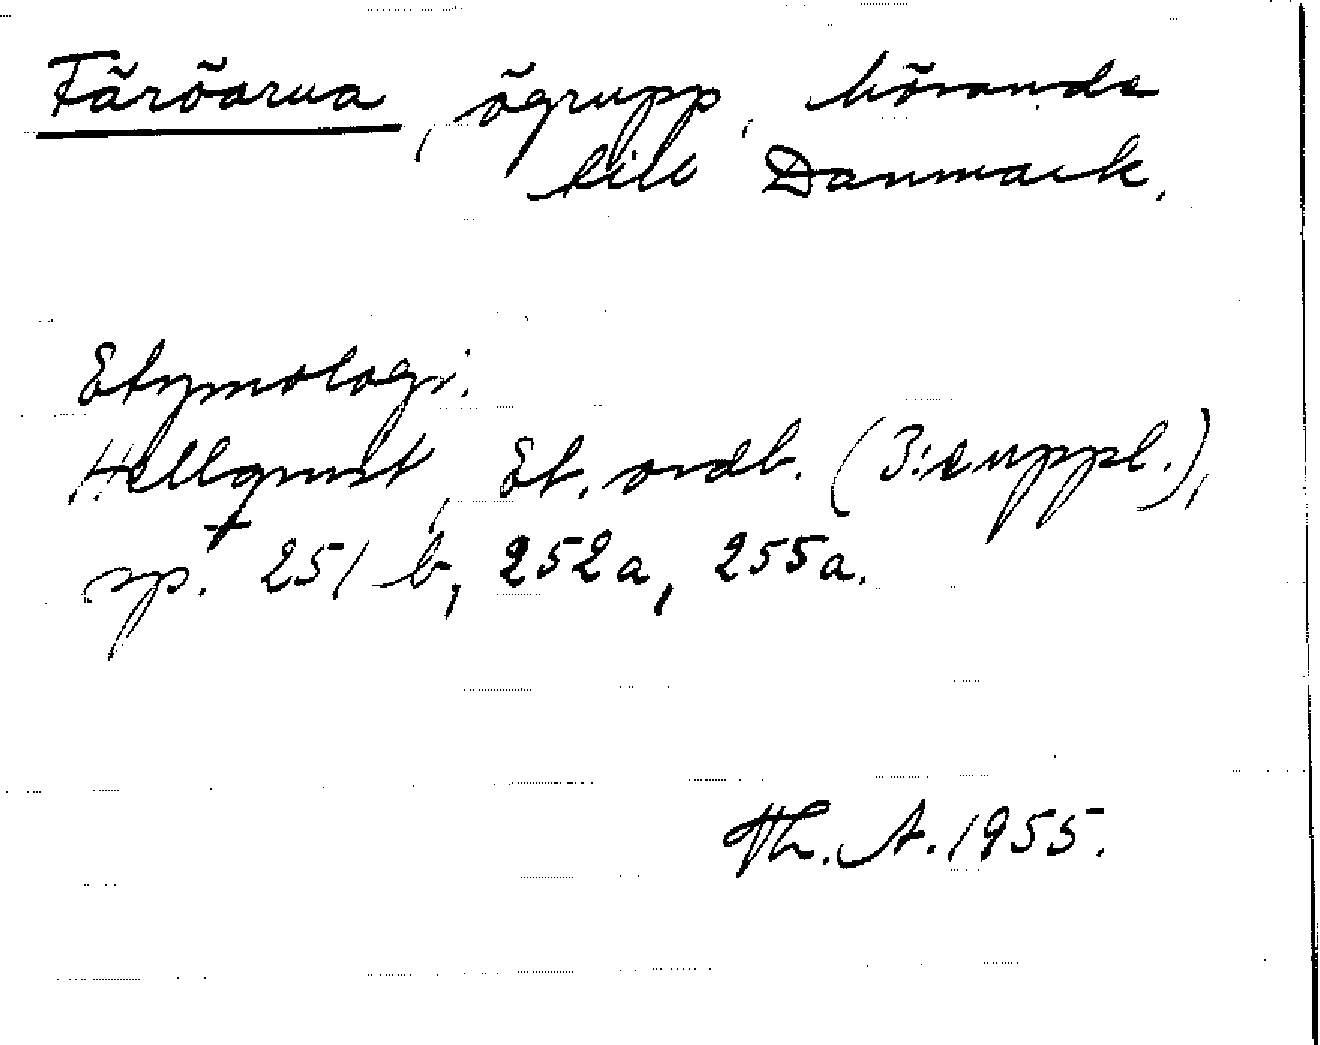 Färöarna, ögrupp, hörande
till Danmark.
Etymologi:
Hellquist, Et. ordb. (3:e uppl.),
sp. 251 b, 252a, 255a.
Th. A. 1955.